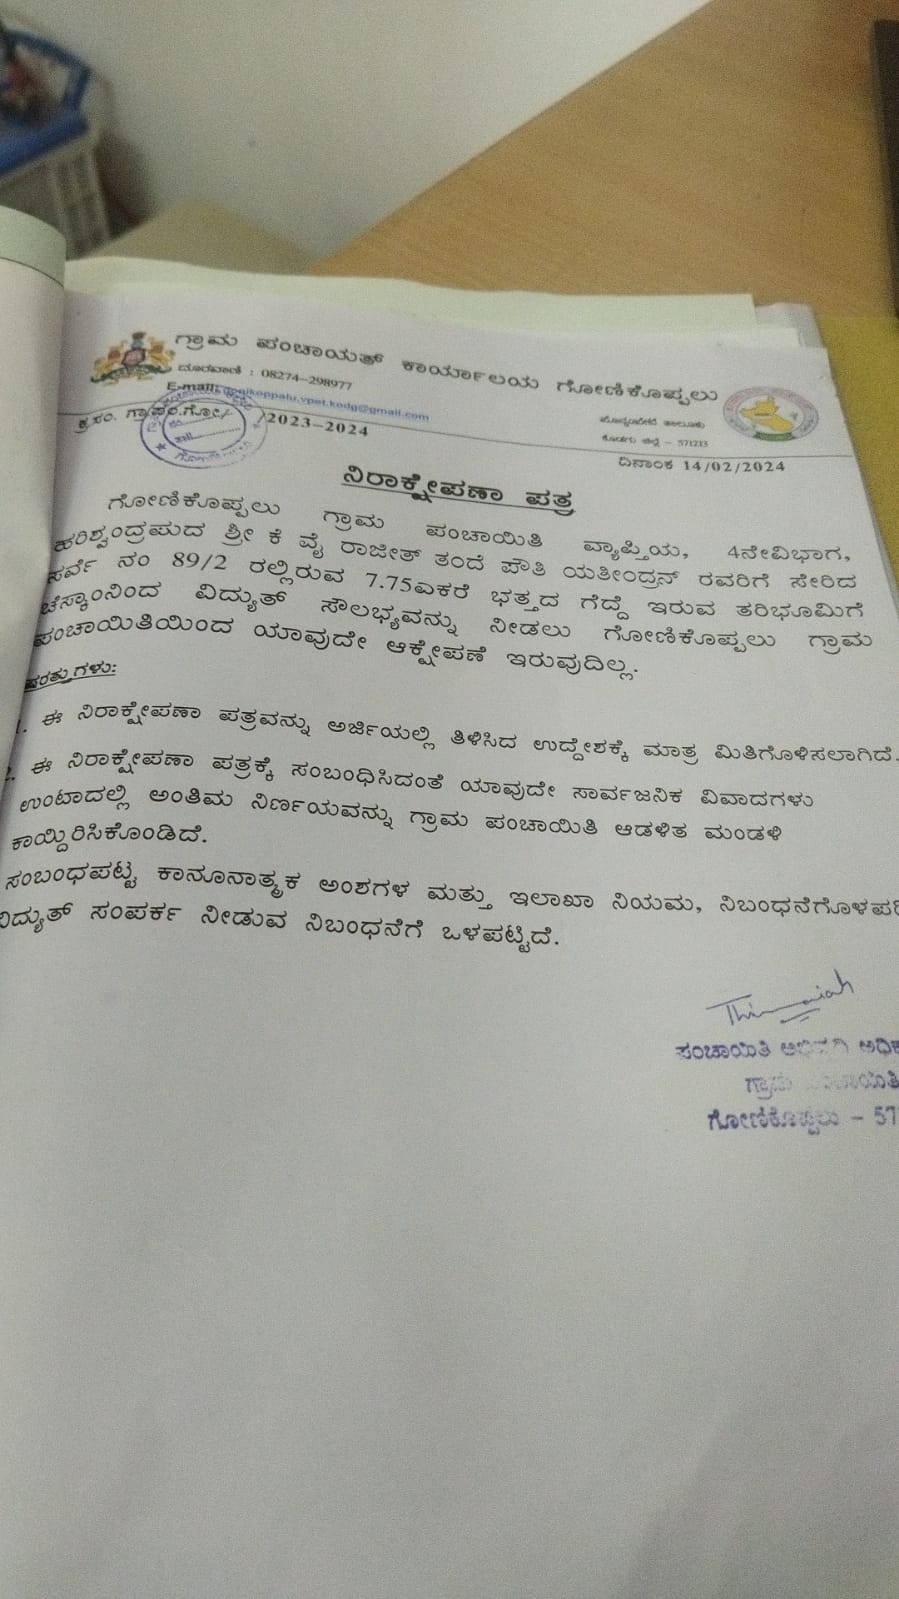 ಗ್ರಾಮ ಪಂಚಾಯತ್ ಕಾರ್ಯಾಲಯ ಗೋಣಿಕೊಪ್ಪಲು
ದೂರವಾಣಿ : 08274-298977
E-mail: gpgikoppalu.vpet.kodg@gmail.com
ಪೊನ್ನಂಪೇಟೆ ತಾಲೂಕು
ಕೊಡಗು ಜಿಲ್ಲೆ - 571213
ಕ್ರ.ಸಂ. ಗ್ರಾ.ಪಂ.ಗೋ/ /2023-2024
ದಿನಾಂಕ 14/02/2024
ನಿರಾಕ್ಷೇಪಣಾ ಪತ್ರ
ಗೋಣಿಕೊಪ್ಪಲು ಗ್ರಾಮ ಪಂಚಾಯಿತಿ ವ್ಯಾಪ್ತಿಯ, 4ನೇವಿಭಾಗ,
ಹರಿಶ್ಚಂದ್ರಪುರದ ಶ್ರೀ ಕೆ ವೈ ರಾಜೀತ್ ತಂದೆ ಪೌತಿ ಯತೀಂದ್ರನ್ ರವರಿಗೆ ಸೇರಿದ
ಸರ್ವೆ ನಂ 89/2 ರಲ್ಲಿರುವ 7.75ಎಕರೆ ಭತ್ತದ ಗೆದ್ದೆ ಇರುವ ತರಿಭೂಮಿಗೆ
ಚೆಸ್ಕಾಂನಿಂದ ವಿದ್ಯುತ್ ಸೌಲಭ್ಯವನ್ನು ನೀಡಲು ಗೋಣಿಕೊಪ್ಪಲು ಗ್ರಾಮ
ಪಂಚಾಯಿತಿಯಿಂದ ಯಾವುದೇ ಆಕ್ಷೇಪಣೆ ಇರುವುದಿಲ್ಲ.
ಷರತ್ತುಗಳು:
1. ಈ ನಿರಾಕ್ಷೇಪಣಾ ಪತ್ರವನ್ನು ಅರ್ಜಿಯಲ್ಲಿ ತಿಳಿಸಿದ ಉದ್ದೇಶಕ್ಕೆ ಮಾತ್ರ ಮಿತಿಗೊಳಿಸಲಾಗಿದೆ.
2. ಈ ನಿರಾಕ್ಷೇಪಣಾ ಪತ್ರಕ್ಕೆ ಸಂಬಂಧಿಸಿದಂತೆ ಯಾವುದೇ ಸಾರ್ವಜನಿಕ ವಿವಾದಗಳು
ಉಂಟಾದಲ್ಲಿ ಅಂತಿಮ ನಿರ್ಣಯವನ್ನು ಗ್ರಾಮ ಪಂಚಾಯಿತಿ ಆಡಳಿತ ಮಂಡಳಿ
ಕಾಯ್ದಿರಿಸಿಕೊಂಡಿದೆ.
ಸಂಬಂಧಪಟ್ಟ ಕಾನೂನಾತ್ಮಕ ಅಂಶಗಳ ಮತ್ತು ಇಲಾಖಾ ನಿಯಮ, ನಿಬಂಧನೆಗೊಳಪ
ವಿದ್ಯುತ್ ಸಂಪರ್ಕ ನೀಡುವ ನಿಬಂಧನೆಗೆ ಒಳಪಟ್ಟಿದೆ.
ಪಂಚಾಯಿತಿ
ಗ್ರಾಮ ಪಂಚಾಯಿತಿ
ಗೋಣಿಕೊಪ್ಪಲು - 57